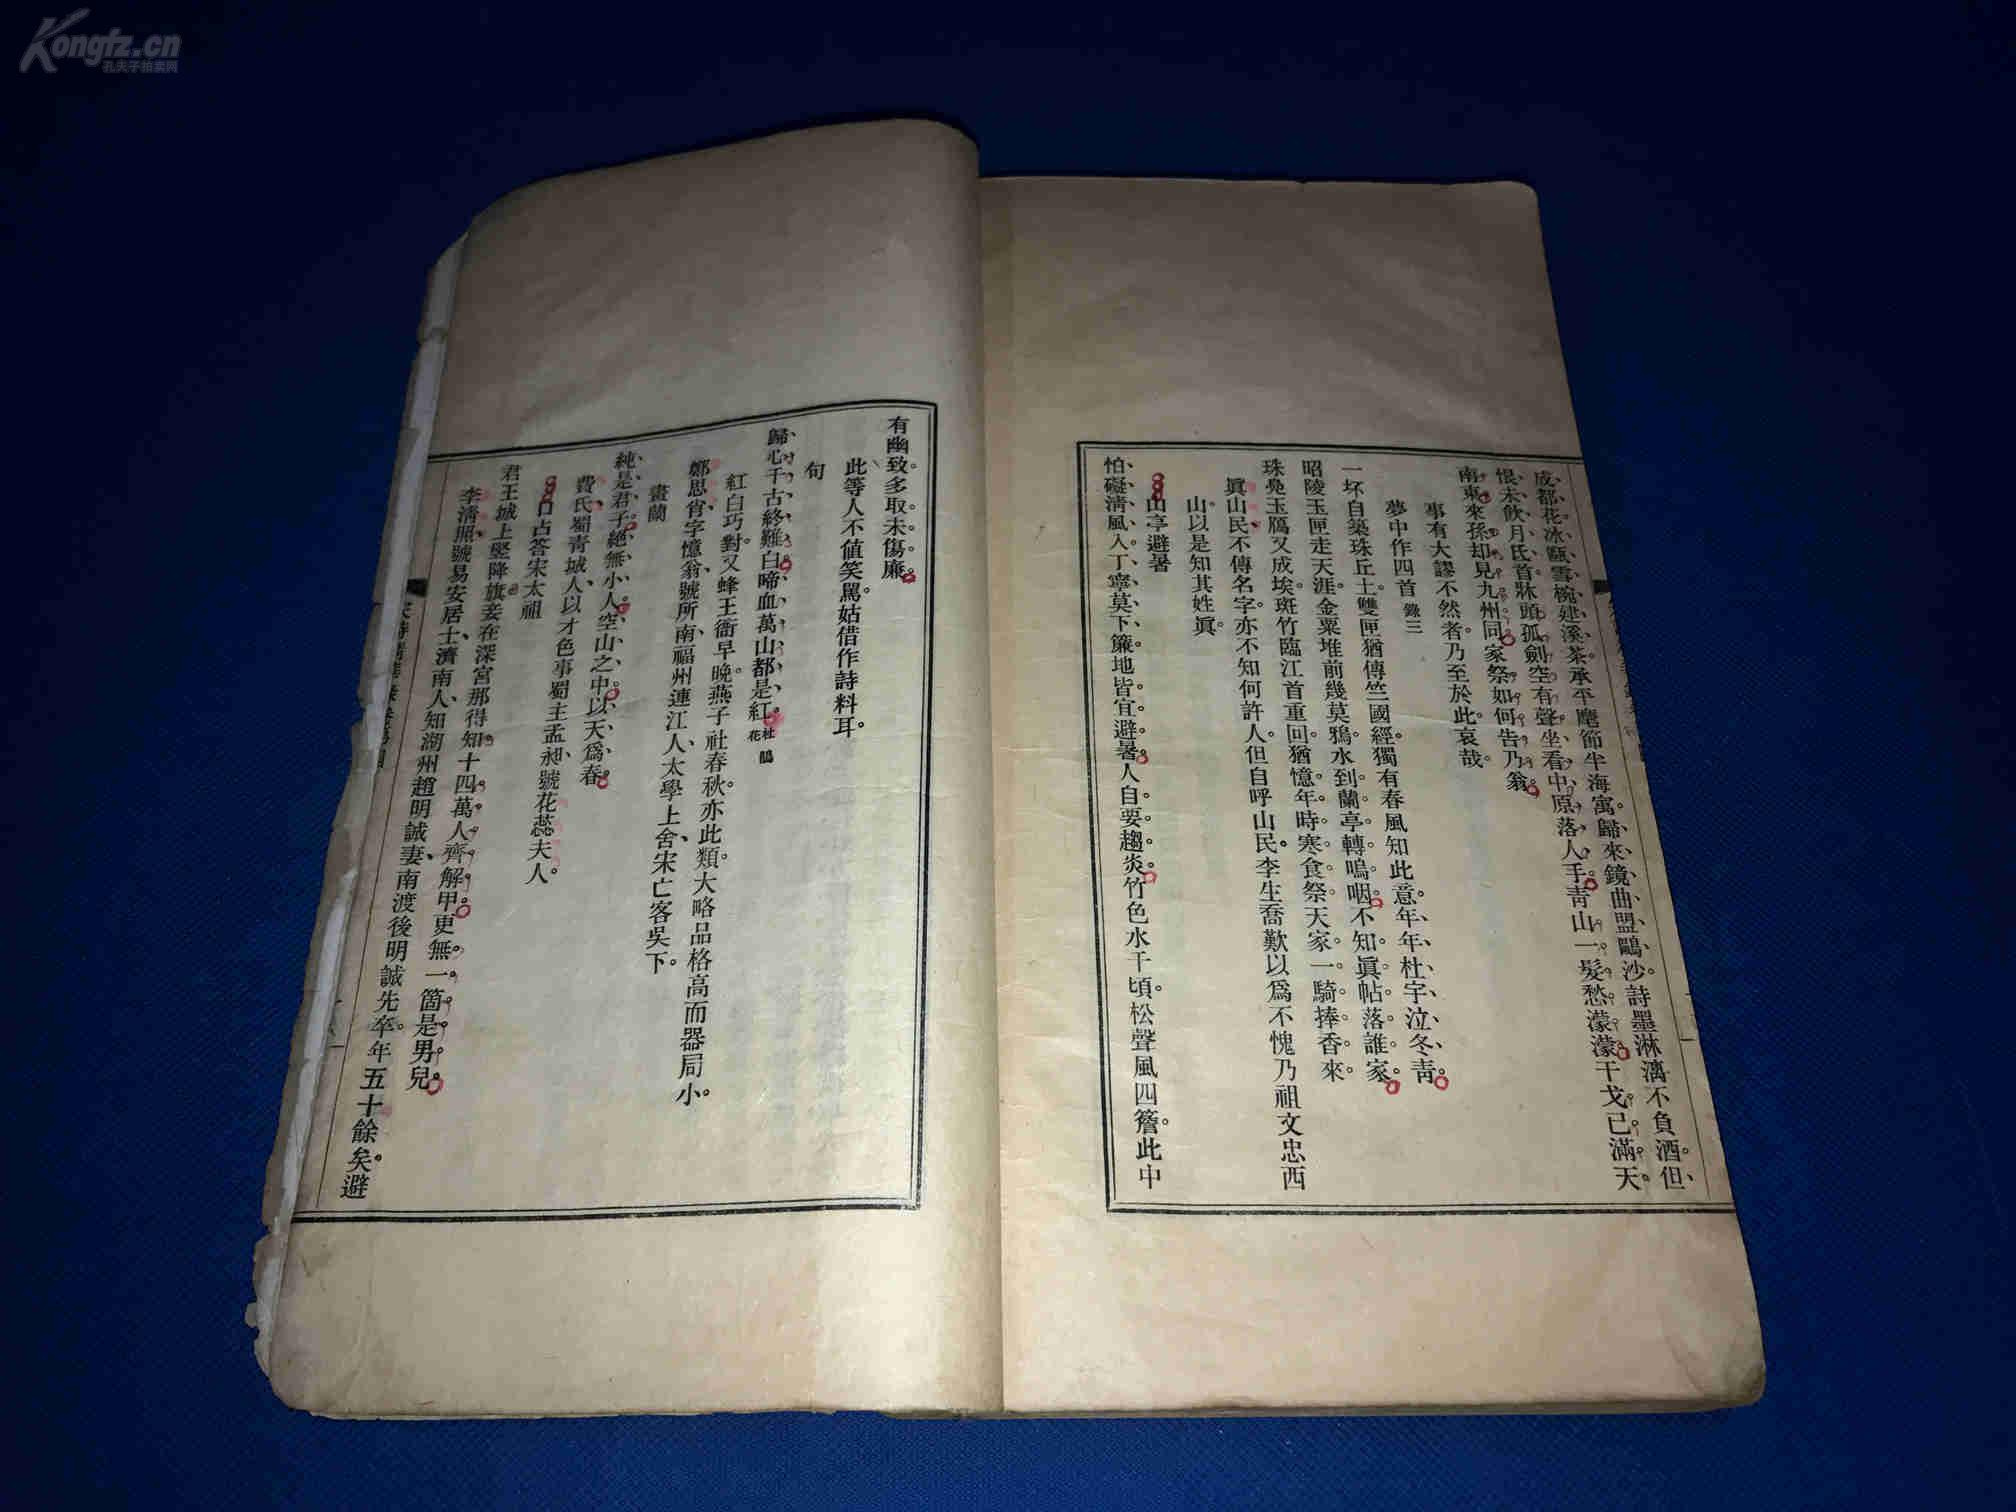 Kongfz.cn
孔夫子拍卖网
成都花冰甌雪椀建溪茶承平麾節半海寓歸來鏡曲盟鷗沙詩墨淋漓不負酒但
恨未飲月氏首牀頭孤劍空有聲坐看中原落人手青山一髮愁濛濛干戈已滿天
南東來孫却見九州同家祭如何告乃翁
事有大謬不然者乃至於此哀哉
夢中作四首 錄三
一坏自築珠丘土雙匣猶傳竺國經獨有春風知此意年年杜宇泣冬青
昭陵玉匣走天涯金粟堆前幾莫鴉水到蘭亭轉嗚咽不知眞帖落誰家
珠鳧玉鴈又成埃斑竹臨江首重回猶憶年時寒食祭天家一騎捧香來
眞山民不傳名字亦不知何許人但自呼山民李生喬歎以爲不愧乃祖文忠西
山以是知其姓眞
山亭避暑
怕礙清風入丁寧莫下簾地皆宜避暑人自要趨炎竹色水千頃松聲風四簷此中
有幽致多取未傷廉
此等人不值笑駡姑借作詩料耳
句
歸心千古終難白啼血萬山都是紅 杜鵑花
紅白巧對又蜂王衙早晚燕子社春秋亦此類大略品格高而器局小
鄭思肖字憶翁號所南福州連江人太學上舍宋亡客吳下
畫蘭
純是君子絕無小人空山之中以天爲春
費氏蜀青城人以才色事蜀主孟昶號花蕊夫人
口占答宋太祖
君王城上豎降旗妾在深宮那得知十四萬人齊解甲更無一箇是男兒
李淸照號易安居士濟南人知湖州趙明誠妻南渡後明誠先卒年五十餘矣避